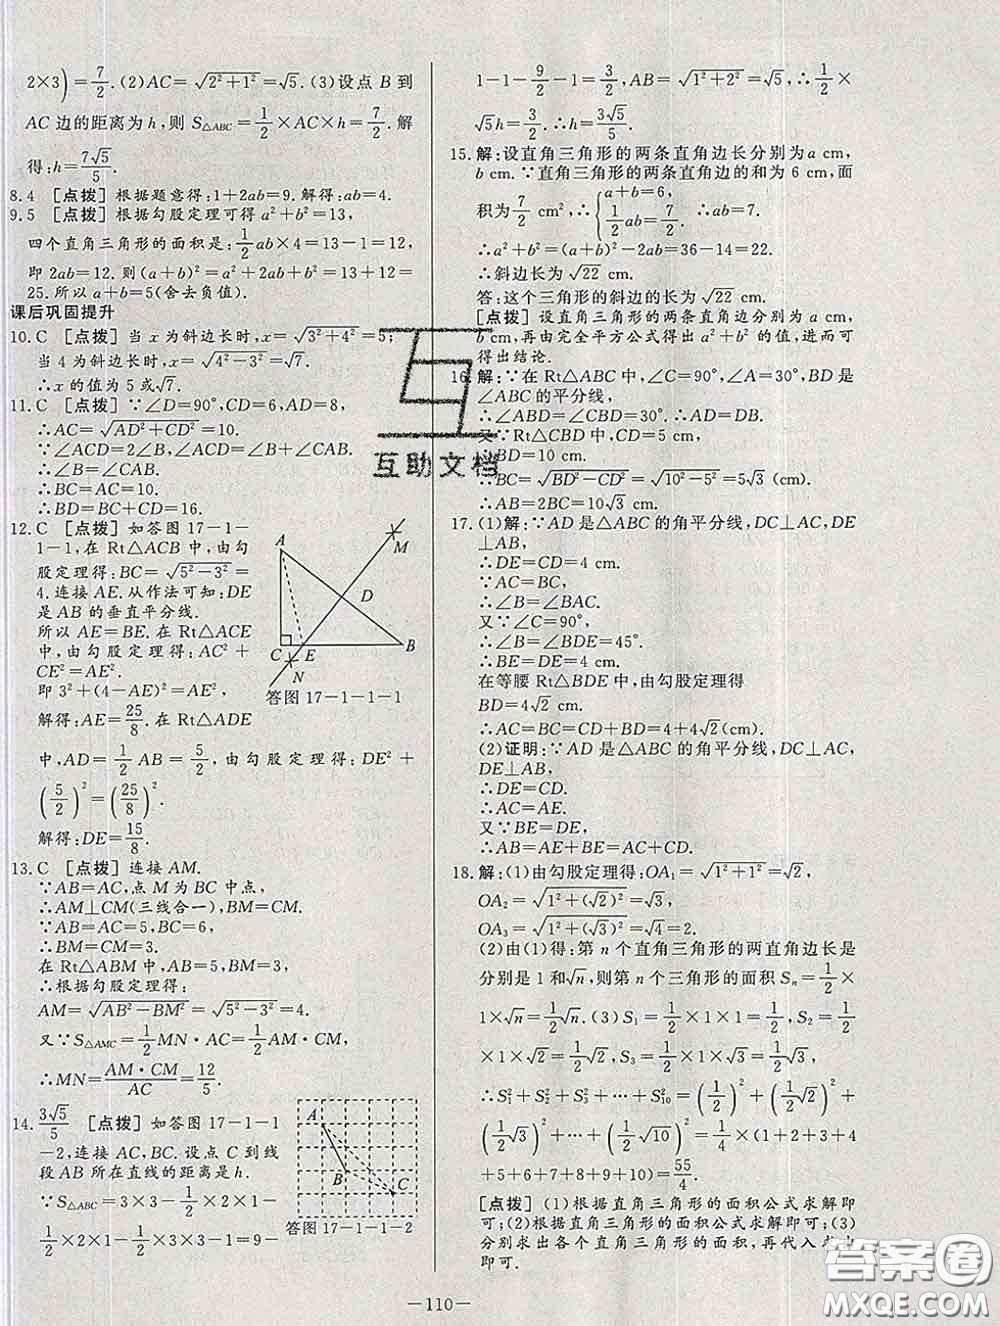 2×3)=7/2. (2)AC=√(2²+1²)=√5. (3)设点 B 到
AC 边的距离为 h,则 S△ABC=1/2×AC×h=7/2. 解
得:h=7√5/5.
8. 4 [点拨] 根据题意得:1+2ab=9. 解得:ab=4.
9. 5 [点拨] 根据勾股定理可得 a²+b²=13,
四个直角三角形的面积是:1/2ab×4=13-1=12,
即 2ab=12. 则(a+b)²=a²+2ab+b²=13+12=
25. 所以 a+b=5(舍去负值).
课后巩固提升
10. C [点拨] 当 x 为斜边长时,x=√(3²+4²)=5;
当 4 为斜边长时,x=√(4²-3²)=√7.
∴x 的值为 5 或√7.
11. C [点拨] ∵∠D=90°,CD=6,AD=8,
∴AC=√(AD²+CD²)=10.
∵∠ACD=2∠B,∠ACD=∠B+∠CAB.
∴∠B=∠CAB.
∴BC=AC=10.
∴BD=BC+CD=16.
12. C [点拨] 如答图 17-1-
1-1,在 Rt△ACB 中,由勾
股定理得:BC=√(5²-3²)=
4. 连接 AE. 从作法可知:DE
是 AB 的垂直平分线.
所以 AE=BE. 在 Rt△ACE
中,由勾股定理得:AC²+
CE²=AE².
即 3²+(4-AE)²=AE².
解得:AE=25/8. 在 Rt△ADE
A
M
D
C
E
B
N
答图 17-1-1-1
中,AD=1/2 AB=5/2,由勾股定理得:DE²+
(5/2)²=(25/8)².
解得:DE=15/8.
13. C [点拨] 连接 AM.
∵AB=AC,点 M 为 BC 中点,
∴AM⊥CM(三线合一),BM=CM.
∵AB=AC=5,BC=6,
∴BM=CM=3.
在 Rt△ABM 中,AB=5,BM=3,
∴根据勾股定理得:
AM=√(AB²-BM²)=√(5²-3²)=4.
又∵S△AMC=1/2MN·AC=1/2AM·CM,
∴MN=AM·CM/AC=12/5.
14. 3√5/5 [点拨] 如答图 17-1-1
-2,连接 AC,BC. 设点 C 到线
段 AB 所在直线的距离是 h.
∵S△ABC=3×3-1/2×2×1-
1/2×2×1-1/2×3×3-1=9-
A
B
C
答图 17-1-1-2
1-1-9/2-1=3/2,AB=√(1²+2²)=√5,∴1/2×
√5h=3/2. ∴h=3√5/5.
15. 解:设直角三角形的两条直角边长分别为 a cm,
b cm. ∵直角三角形两条直角边的和为 6 cm,面
积为7/2 cm²,∴{a+b=6, 1/2ab=7/2. ∴ab=7.
∴a²+b²=(a+b)²-2ab=36-14=22.
∴斜边长为√22 cm.
答:这个三角形的斜边的长为√22 cm.
[点拨] 设直角三角形的两条直角边分别为 a cm,
b cm,再由完全平方公式得出 a²+b² 的值,进而可
得出结论.
16. 解:∵在 Rt△ABC 中,∠C=90°,∠A=30°,BD 是
∠ABC 的平分线,
∴∠ABD=∠CBD=30°. ∴AD=DB.
又∵Rt△CBD 中,CD=5 cm,
∴BD=10 cm.
∴BC=√(BD²-CD²)=√(10²-5²)=5√3(cm).
∴AB=2BC=10√3 cm.
17. (1)解:∵AD 是△ABC 的角平分线,DC⊥AC,DE
⊥AB,
∴DE=CD=4 cm.
∵AC=BC,
∴∠B=∠BAC.
又∵∠C=90°,
∴∠B=∠BDE=45°.
∴BE=DE=4 cm.
在等腰 Rt△BDE 中,由勾股定理得
BD=4√2 cm.
∴AC=BC=CD+BD=4+4√2(cm).
(2)证明:∵AD 是△ABC 的角平分线,DC⊥AC,
DE⊥AB,
∴DE=CD.
∴AC=AE.
又∵BE=DE,
∴AB=AE+BE=AC+CD.
18. 解:(1)由勾股定理得:OA₁=√(1²+1²)=√2,
OA₂=√(1²+(√2)²)=√3,
OA₃=√(1²+(√3)²)=√4=2.
(2)由(1)得:第 n 个直角三角形的两直角边长是
分别是 1 和√n,则第 n 个三角形的面积 Sₙ=1/2×
1×√n=1/2√n. (3)S₁=1/2×1×1=1/2,S₂=1/2
×1×√2=1/2√2,S₃=1/2×1×√3=1/2√3,
∴S₁²+S₂²+S₃²+…+S₁₀²=(1/2)²+(1/2√2)²
+(1/2√3)²+…+(1/2√10)²=1/4×(1+2+3+4
+5+6+7+8+9+10)=55/4.
[点拨] (1)根据直角三角形的面积公式求解即
可;(2)根据直角三角形的面积公式求解即可;(3)
分别求出各个直角三角形的面积,再代入求出
即可.
—110—
互助文档
答案圈
MXQE.COM